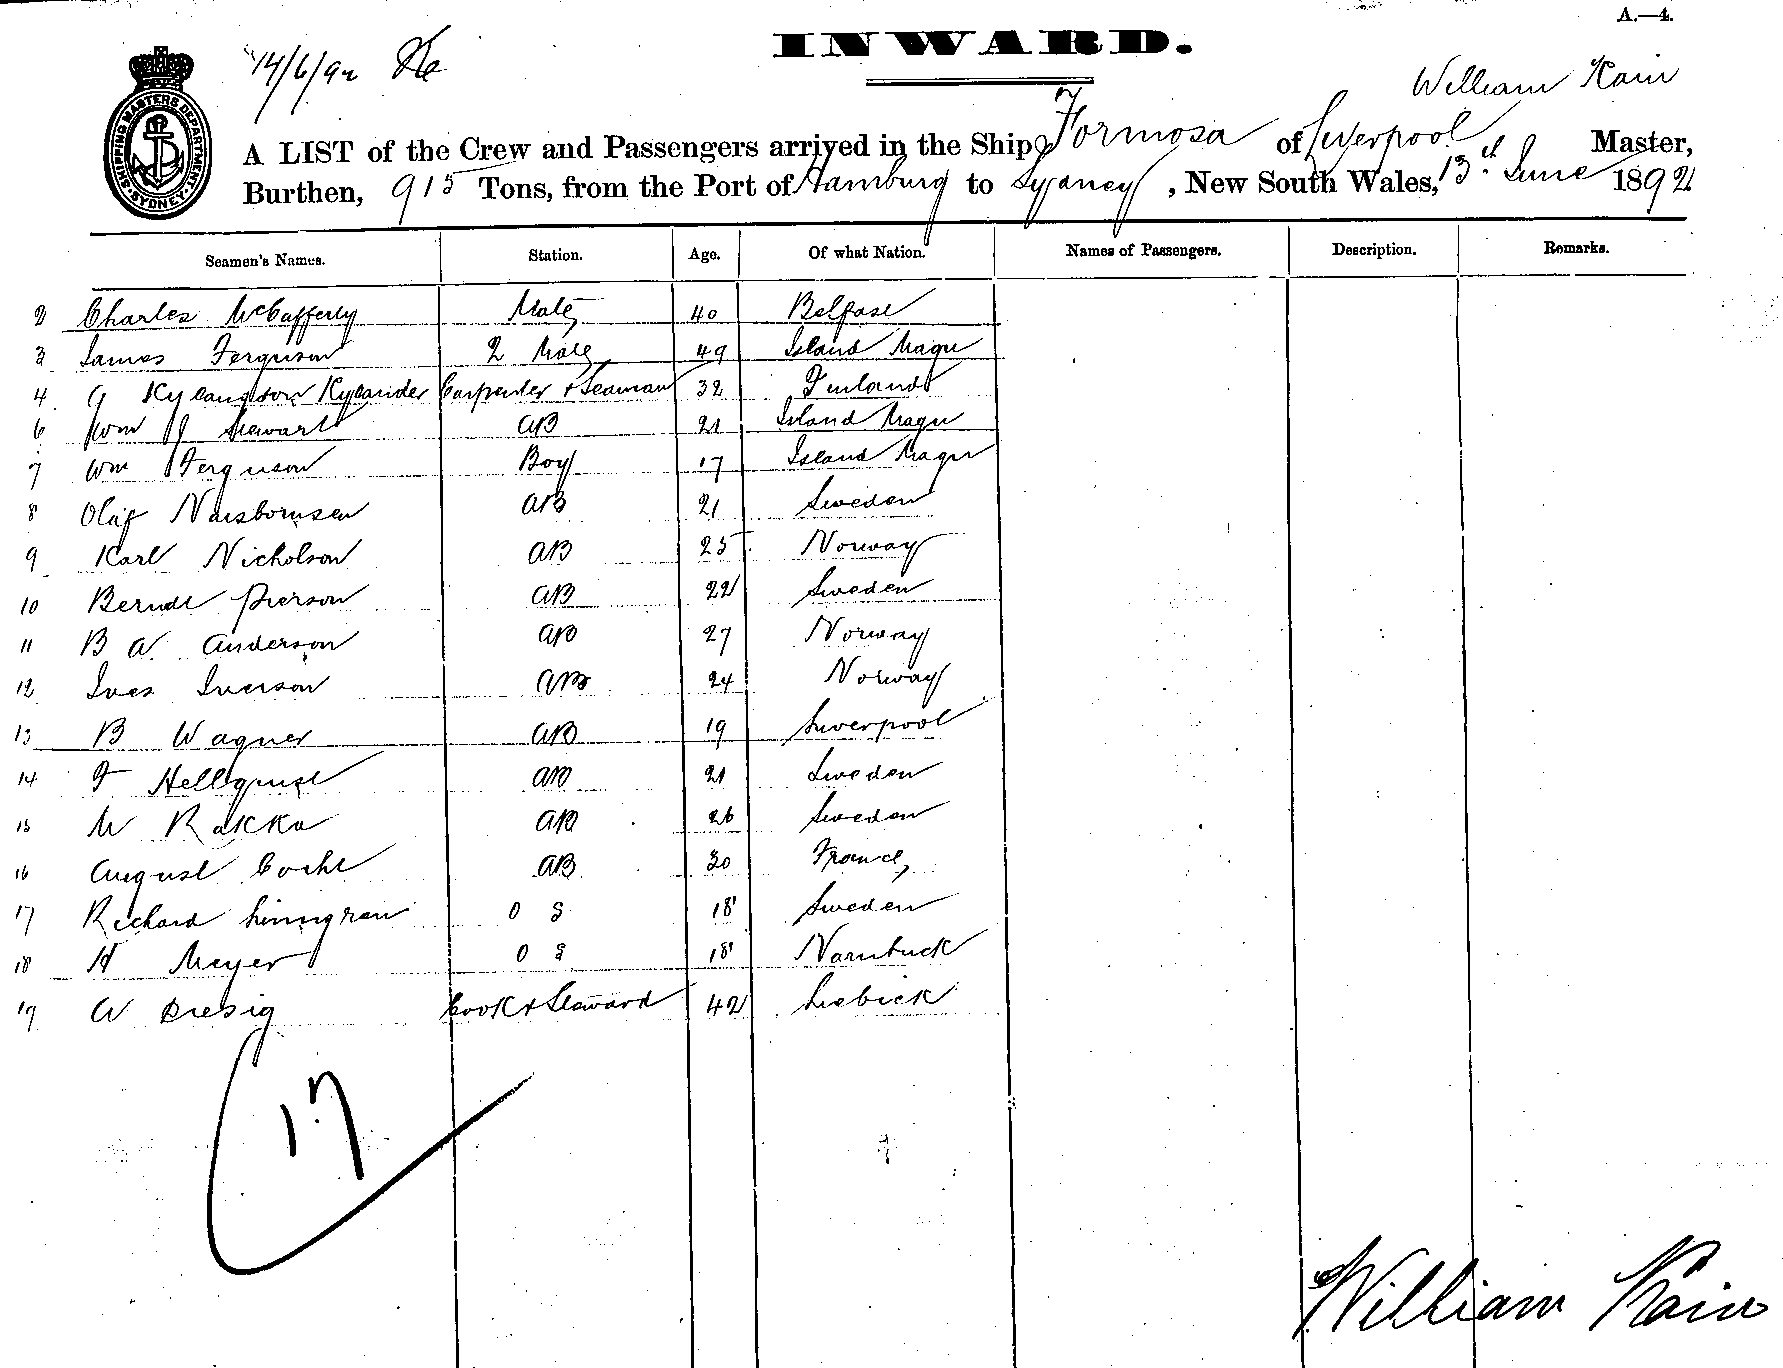 A.—4.
14/6/92
INWARD.
William Kain
A LIST of the Crew and Passengers arrived in the Ship Formosa of Liverpool Master,
Burthen, 915 Tons, from the Port of Hamburg to Sydney, New South Wales, 13th June 1892
SHIPPING MASTERS DEPARTMENT SYDNEY
Seamen's Names. Station. Age. Of what Nation. Names of Passengers. Description. Remarks.
2 Charles McCafferty Mate 40 Belfast
3 James Ferguson 2 Mate 49 Island Magee
4 Kylander Carpenter + Seaman 32 Finland
6 Wm J Stewart AB 21 Island Magee
7 Wm Ferguson Boy 17 Island Magee
8 Olaf AB 21 Sweden
9 Karl Nicholson AB 25 Norway
10 Berndt Pierson AB 22 Sweden
11 B A Anderson AB 27 Norway
12 Ives Iverson AB 24 Norway
13 B Wagner AB 19 Liverpool
14 F Hellquist AB 21 Sweden
15 M Rakka AB 26 Sweden
16 August AB 30 France
17 Richard O S 18 Sweden
18 H Meyer O S 18
19 A Dresig Cook + Steward 42
17
William Kain